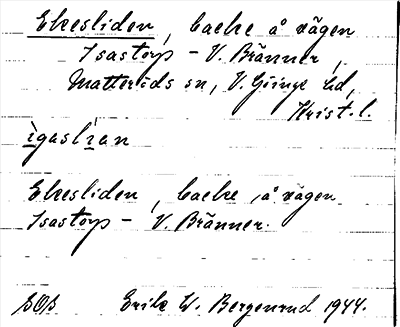 Ekesliden, backe å vägen
Isastorp - V. Bränner,
Matteröds sn, V. Göinge hd,
Krist. l.
ìgaslìan
Ekesliden, backe, å vägen
Isastorp - V. Bränner.
SOS Erik W. Bergenrud 1944.